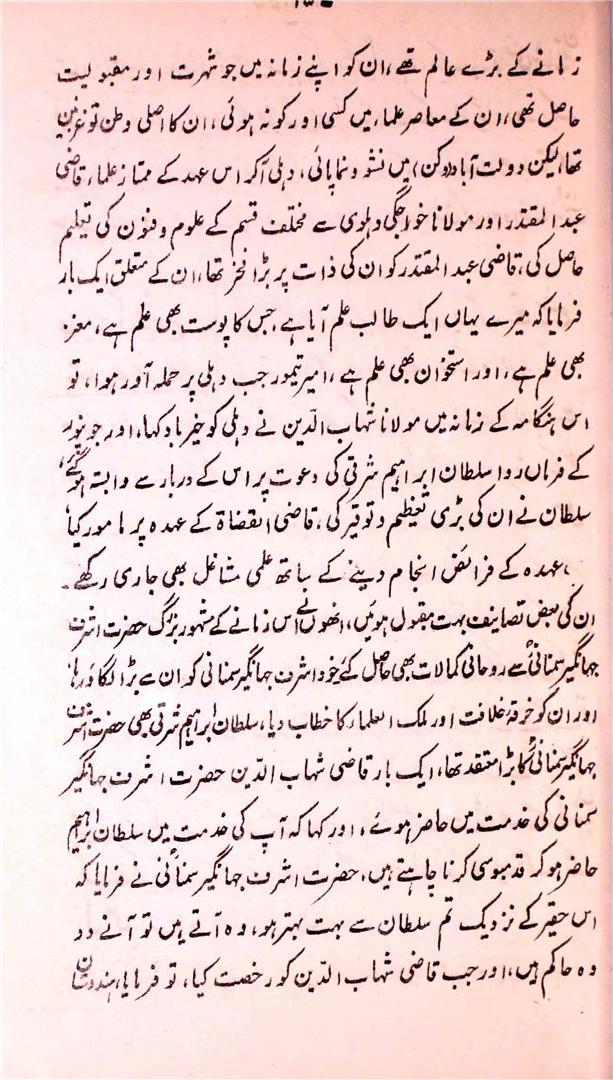 زمانے کے بڑے عالم تھے، ان کو اپنے زمانہ میں جو شہرت اور مقبولیت
حاصل تھی، ان کے معاصر علماء میں کسی اور کو نہ ہوئی، ان کا اصلی وطن تو غزنین
تھا، لیکن دولت آباد (دکن) میں نشو ونما پائی، دہلی آکر اس عہد کے ممتاز علماء قاضی
عبدالمقتدر اور مولانا خواجگی دہلوی سے مختلف قسم کے علوم وفنون کی تعلیم
حاصل کی، قاضی عبدالمقتدر کو ان کی ذات پر بڑا فخر تھا، ان کے متعلق ایک بار
فرمایا کہ میرے یہاں ایک طالب علم آیا ہے، جس کا پوست بھی علم ہے، مغز
بھی علم ہے، اور استخوان بھی علم ہے، امیر تیمور جب دہلی پر حملہ آور ہوا، تو
اس ہنگامہ کے زمانہ میں مولانا شہاب الدین نے دہلی کو خیر باد کہا، اور جونپور
کے فرماں روا سلطان ابراہیم شرقی کی دعوت پر اس کے دربار سے وابستہ ہوگئے،
سلطان نے ان کی بڑی تعظیم وتوقیر کی، قاضی القضاۃ کے عہدہ پر مامور کیا
، عہدہ کے فرائض انجام دینے کے ساتھ علمی مشاغل بھی جاری رکھے۔
ان کی بعض تصانیف بہت مقبول ہوئیں، انھوں نے اس زمانے کے مشہور بزرگ حضرت اشرف
جہانگیر سمنانیؒ سے روحانی کمالات بھی حاصل کئے، خود اشرف جہانگیر سمنانی کو ان سے بڑا لگاؤ رہا
اور ان کو خرقۂ خلافت اور ملک العلماء کا خطاب دیا، سلطان ابراہیم شرقی بھی حضرت اشرف
جہانگیر سمنانیؒ کا بڑا معتقد تھا، ایک بار قاضی شہاب الدین حضرت اشرف جہانگیر
سمنانی کی خدمت میں حاضر ہوئے، اور کہا کہ آپ کی خدمت میں سلطان ابراہیم
حاضر ہو کر قدمبوسی کرنا چاہتے ہیں، حضرت اشرف جہانگیر سمنانیؒ نے فرمایا کہ
اس حقیر کے نزدیک تم سلطان سے بہت بہتر ہو، وہ آتے ہیں تو آنے دو
وہ حاکم ہیں، اور جب قاضی شہاب الدین کو رخصت کیا، تو فرمایا، ہندوستان